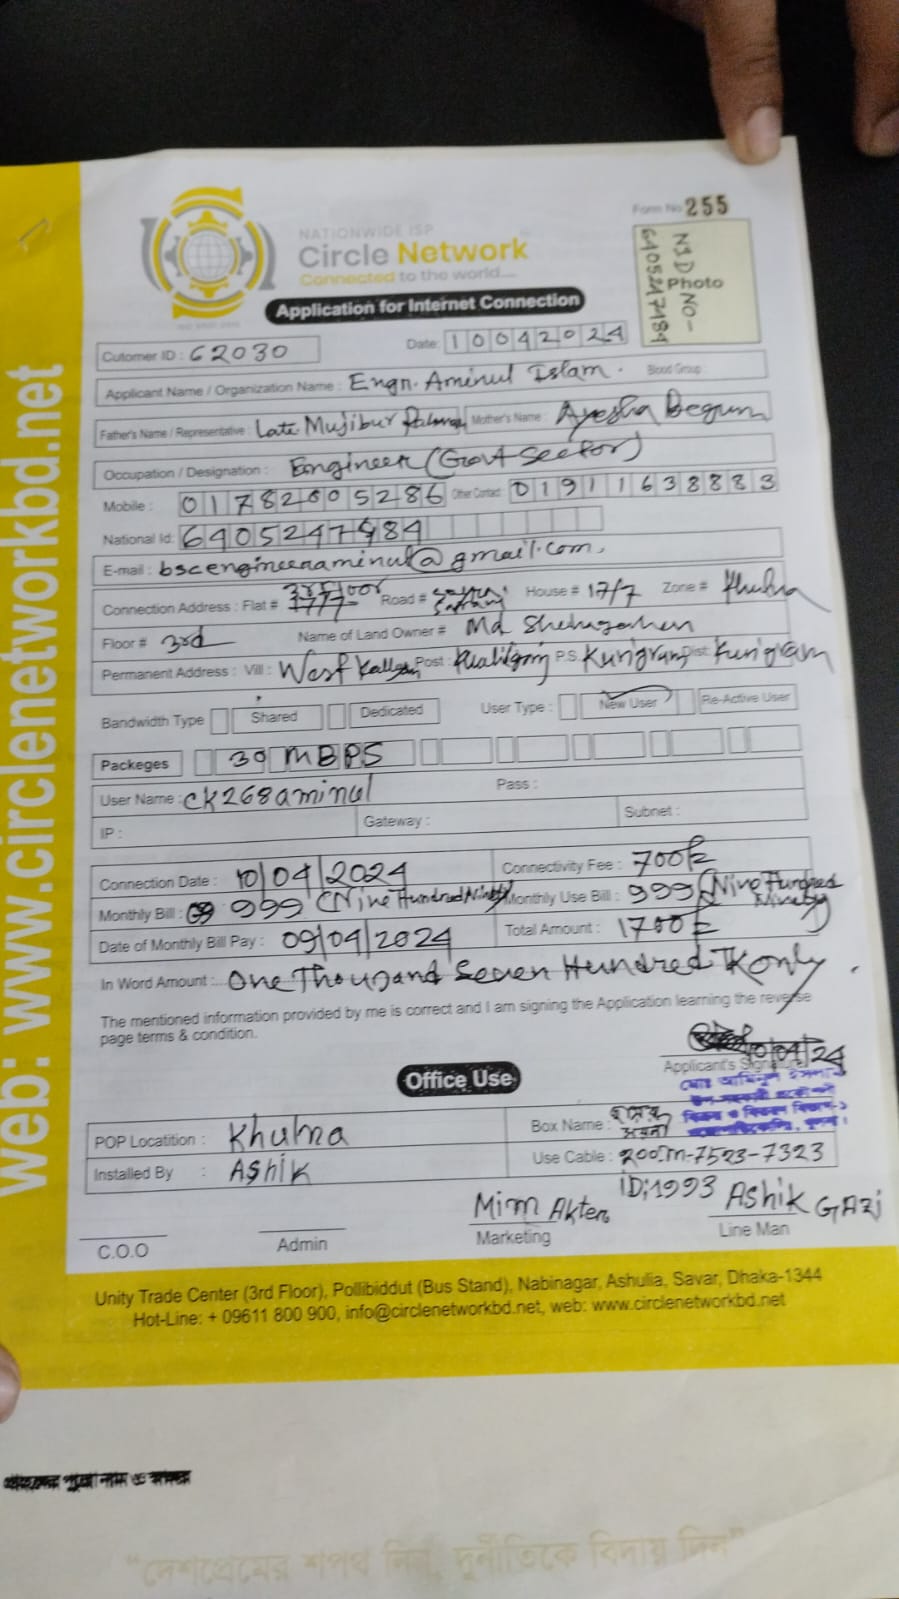 Form No 255
NATIONWIDE ISP
Circle Network
Connected to the world....
Photo
NID NO-
6405247484
Application for Internet Connection
Cutomer ID : 62030
Date: 10042024
Applicant Name / Organization Name : Engr. Aminul Islam. Blood Group :
Father's Name / Representative : Late Mujibur Rahman Mother's Name : Ayesha Begum
Occupation / Designation : Engineer (Govt Sector)
Mobile : 01782005286 Other Contact: 01911638883
National Id: 6405247484
E-mail : bscengineeraminul@gmail.com.
Connection Address : Flat # 3rd Floor Road # House # 17/7 Zone # Khulna
Floor # 3rd Name of Land Owner # Md
Permanent Address : Vill : West Post : P.S. Kurigram Dist: Kurigram
Bandwidth Type Shared Dedicated User Type : New User Re-Active User
Packeges 30 MBPS
User Name : ck268aminul Pass :
IP : Gateway : Subnet :
Connection Date : 10/04/2024 Connectivity Fee : 700/=
Monthly Bill : 999 (Nine Hundred Ninety Monthly Use Bill : 999 (Nine Hundred Ninety
Date of Monthly Bill Pay : 09/04/2024 Total Amount : 1700/=
In Word Amount :.. One Thousand Seven Hundred TK only.
The mentioned information provided by me is correct and I am signing the Application learning the reverse
page terms & condition.
10/04/24
Applicant's Signature
Office Use
POP Locatition : Khulna Box Name :
Installed By : Ashik Use Cable : 200m-7523-7323
ID:1993
Mim Akter Ashik GAzi
C.O.O Admin Marketing Line Man
Unity Trade Center (3rd Floor), Pollibiddut (Bus Stand), Nabinagar, Ashulia, Savar, Dhaka-1344
Hot-Line: + 09611 800 900, info@circlenetworkbd.net, web: www.circlenetworkbd.net
web: www.circlenetworkbd.net
"দেশপ্রেমের শপথ নিন, দুর্নীতিকে বিদায় দিন"